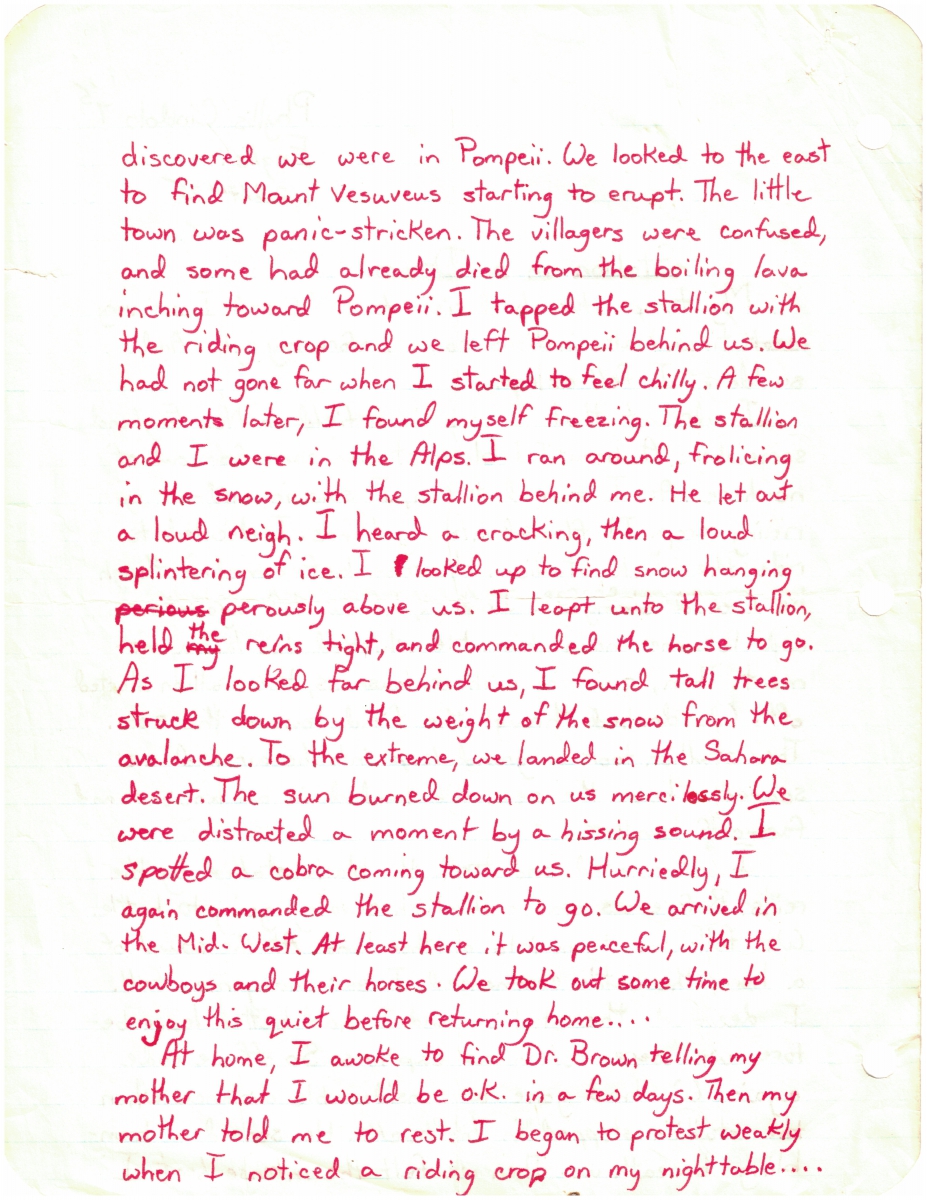 discovered we were in Pompeii. We looked to the east
to find Mount Vesuveus starting to erupt. The little
town was panic-stricken. The villagers were confused,
and some had already died from the boiling lava
inching toward Pompeii. I tapped the stallion with
the riding crop and we left Pompeii behind us. We
had not gone far when I started to feel chilly. A few
moments later, I found myself freezing. The stallion
and I were in the Alps. I ran around, frolicing
in the snow, with the stallion behind me. He let out
a loud neigh. I heard a cracking, then a loud
splintering of ice. I looked up to find snow hanging
perious perously above us. I leapt unto the stallion,
held my the reins tight, and commanded the horse to go.
As I looked far behind us, I found tall trees
struck down by the weight of the snow from the
avalanche. To the extreme, we landed in the Sahara
desert. The sun burned down on us mercilessly. We
were distracted a moment by a hissing sound. I
spotted a cobra coming toward us. Hurriedly, I
again commanded the stallion to go. We arrived in
the Mid-West. At least here it was peaceful, with the
cowboys and their horses. We took out some time to
enjoy this quiet before returning home....
At home, I awoke to find Dr. Brown telling my
mother that I would be o.k. in a few days. Then my
mother told me to rest. I began to protest weakly
when I noticed a riding crop on my nighttable....